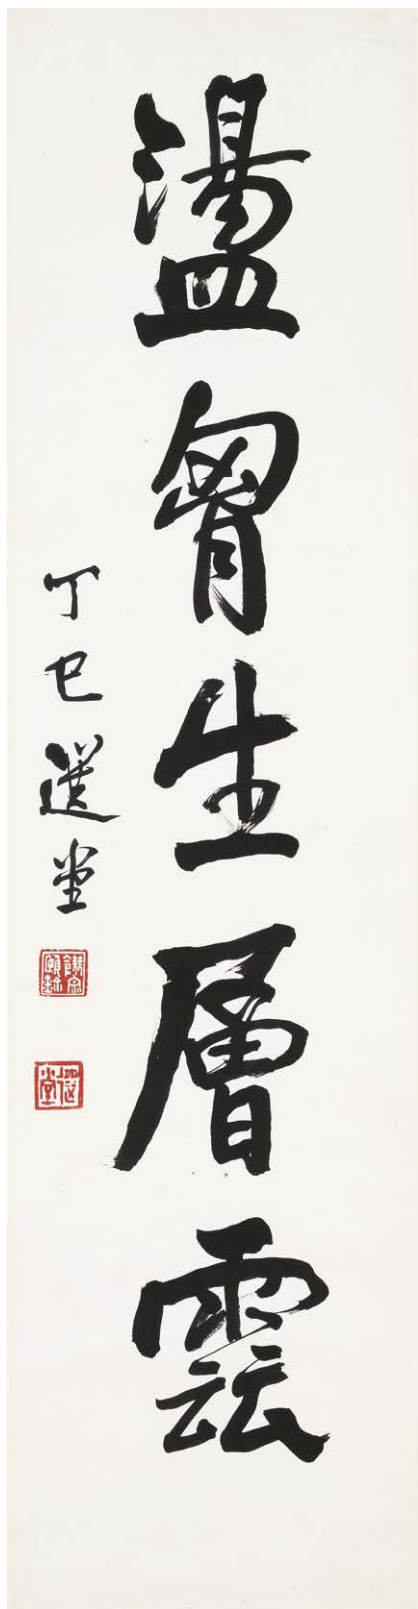 盪胷生層雲
丁巳選堂
饒宗頤鉨
選堂